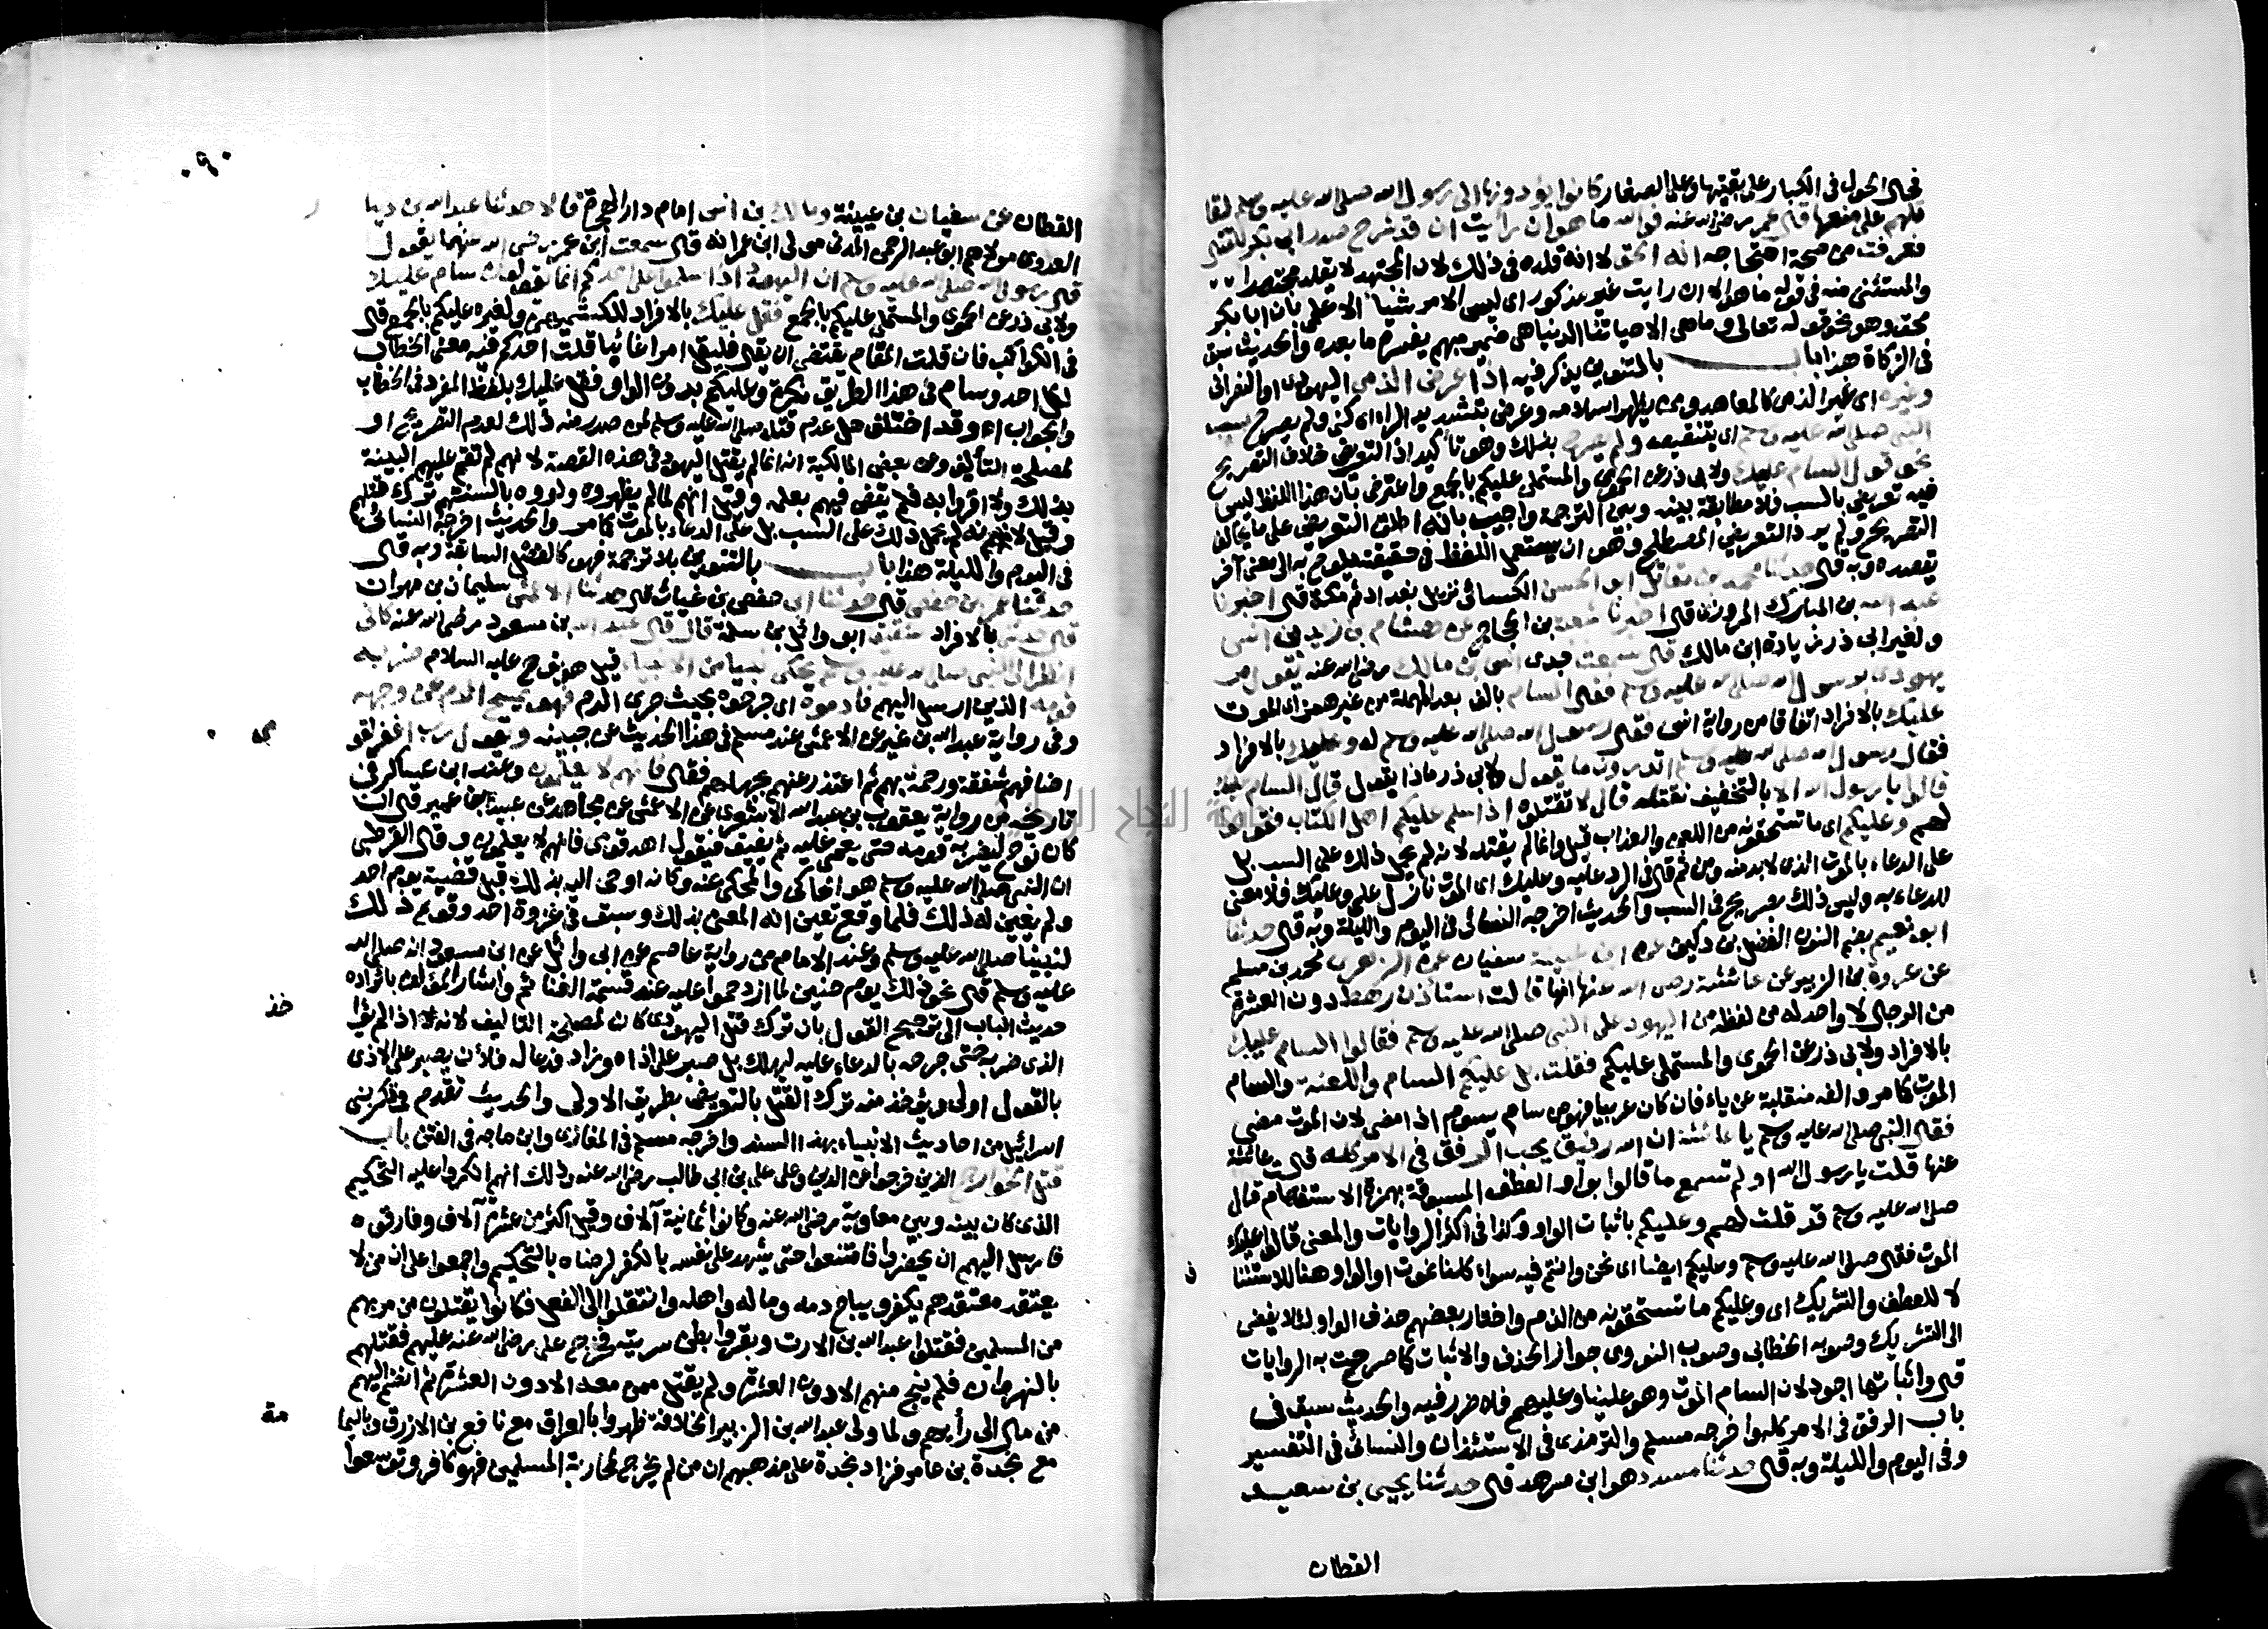 فحال الحول في الكبار على بقيتها وعلى الصغار كانوا يؤدونها الى رسول الله صلى الله عليه وسلم لقا
تلتهم على منعها قال عمر رضى الله عنه فوالله ما هو ان رأيت ان قد شرح صدر ابي بكر للقتال
فعرفت من صحة احتجاجه انه الحق لا انه قلده في ذلك لان المجتهد لا يقلد مجتهدا
والمستثنى منه في قوله ما هو الا ان رايت غير مذكور اى ليس الامر شيأ الا علمي بان ابا بكر
محق وهو نحو قوله تعالى وما هى الا حياتنا الدنيا هى ضمير مبهم يفسره ما بعده والحديث سبق
في الزكاة هذا باب بالتنوين يذكر فيه اذا عرض الذمى اليهودى او النصرانى
وغيره اى غير الذمى كالمعاهد ومن يظهر اسلامه وعرض بتشديد الراء اى كنى ولم يصرح بسب
النبى صلى الله عليه وسلم اى بتنقيصه ولم يصرح بذلك وهو تأكيد اذ التعريض خلاف التصريح
نحو قول السام عليك ولابى ذر عن الحموى والمستملى عليكم بالجمع واعترض بان هذا اللفظ ليس
فيه تعريض بالسب فلا مطابقة بينه وبين الترجمة واجيب بانه اطلق التعريض على ما يخالف
التصريح ولم يرد التعريض المصطلح وهو ان يستعمل اللفظ في حقيقته يلوح به الى معنى آخر
يقصده وبه قال حدثنا محمد بن مقاتل ابو الحسن الكسائى نزيل بغداد ثم مكة قال اخبرنا
عبد الله بن المبارك المروزى قال اخبرنا شعبة بن الحجاج عن هشام بن زيد بن انس
ولغير ابى ذر زيادة ابن مالك قال سمعت جدى انس بن مالك رضى الله عنه يقول مر
يهودى برسول الله صلى الله عليه وسلم فقال السام بالف بعد المهملة من غير همز اى الموت
عليك بالافراد اتفاقا من رواية انس فقال رسول الله صلى الله عليه وسلم له وعليك بالافراد
فقال رسول الله صلى الله عليه وسلم اتدرون ما يقول ولابى ذر ماذا يقول قال السام عليك
قالوا يا رسول الله الا بالتخفيف نقتله قال لا تقتلوه اذا سلم عليكم اهل الكتاب فقولوا
لهم وعليكم اى ما تستحقونه من اللعن والعذاب قيل وانما لم يقتله لانه لم يحمل ذلك على السب بل
على الدعاء بالموت الذى لا بد منه ومن ثم قال في الرد عليه وعليك اى الموت نازل على وعليك فلا معنى
للدعاء به وليس ذلك بصريح في السب والحديث اخرجه النسائى في اليوم والليلة وبه قال حدثنا
ابو نعيم بضم النون الفضل بن دكين عن ابن عيينة سفيان عن الزهرى محمد بن مسلم
عن عروة بن الزبير عن عائشة رضى الله عنها انها قالت استأذن رهط دون العشرة
من الرجال لا واحد له من لفظه من اليهود على النبى صلى الله عليه وسلم فقالوا السام عليك
بالافراد ولابى ذر عن الحموى والمستملى عليكم فقلت بل عليكم السام واللعنة والسام
الموت كما مر والفه منقلبة عن ياء فان كان عربيا فهو من سام يسوم اذا مضى لان الموت مضى
فقال النبى صلى الله عليه وسلم يا عائشة ان الله رفيق يحب الرفق في الامر كله قالت عائشة
عنها قلت يا رسول الله اولم تسمع ما قالوا بواو العطف المسبوقة بهمزة الاستفهام قال
صلى الله عليه وسلم قد قلت لهم وعليكم باثبات الواو وكذا في اكثر الروايات والمعنى قالوا عليك
الموت فقال صلى الله عليه وسلم وعليكم ايضا اى نحن وانتم فيه سواء كلنا نموت او الواو هنا للاستئنا
لا للعطف والتشريك اى وعليكم ما تستحقونه من الذم واختار بعضهم حذف الواو لئلا يفضى
الى التشريك وصوبه الخطابى وصوب النووى جواز الحذف والاثبات كما صرحت به الروايات
قال واثباتها اجود لان السام الموت وهو علينا وعليهم فلا ضرر فيه والحديث سبق في
باب الرفق في الامر كله واخرجه مسلم والترمذى في الاستئذان والنسائى في التفسير
وفى اليوم والليلة وبه قال حدثنا مسدد هو ابن مسرهد قال حدثنا يحيى بن سعيد
القطان
القطان عن سفيان بن عيينة ومالك بن انس امام دار الهجرة قالا حدثنا عبد الله بن دينا
العدوى مولاهم ابو عبد الرحمن المدنى مولى ابن عمر انه قال سمعت ابن عمر رضى الله عنهما يقول
قال رسول الله صلى الله عليه وسلم ان اليهود اذا سلموا على احدكم انما يقولون سام عليك
ولابى ذر عن الحموى والمستملى عليكم بالجمع فقل عليك بالافراد للكشميهنى ولغيره عليكم بالجمع قال
في الكواكب فان قلت المقام يقتضى ان يقال فليقل امرا غائبا قلت احدكم فيه معنى الخطاب
لكل احد وسام في هذا الطريق نكرة وعليكم بدون الواو وفقل عليك بلفظ المفرد في الخطاب
والجواب اه وقد اختلف هل عدم قتله صلى الله عليه وسلم لمن صدر منه ذلك لعدم التصريح او
لمصلحة التأليف وعن بعض المالكية انه انما لم يقتل اليهود في هذه القصة لانهم لم تقم عليهم البينة
بذلك ولا اقروا به فلم يقض فيهم بعلمه وقيل انهم لما لم يظهروه ولووه بالسنتهم ترك قتلهم
وقيل لانه لم يحمل ذلك على السب بل على الدعاء بالموت كما مر والحديث اخرجه النسائى
في اليوم والليلة هذا باب بالتنوين بلا ترجمة فهو كالفصل السابقة وبه قال
حدثنا عمر بن حفص قال حدثنا ابى حفص بن غياث قال حدثنا الاعمش سليمان بن مهران
قال حدثنى بالافراد شقيق ابو وائل بن سلمة قال قال عبد الله بن مسعود رضى الله عنه كانى
انظر الى النبى صلى الله عليه وسلم يحكى نبيا من الانبياء قيل هو نوح عليه السلام ضربه
قومه الذين ارسل اليهم فادموه اى جرحوه بحيث جرى الدم فهو يمسح الدم عن وجهه
وفى رواية عبد الله بن نمير عن الاعمش عند مسلم في هذا الحديث عن جبينه ويقول رب اغفر لقو
اضافهم شفقة ورحمة بهم ثم اعتذر عنهم بجهلهم فقال فانهم لا يعلمون وعند ابن عساكر في
تاريخه من رواية يعقوب بن عبد الله الاشعرى عن الاعمش عن مجاهد عن عبيد بن عمير قال ان
كان نوح ليضربه قومه حتى يغمى عليه ثم يفيق فيقول اهد قومى فانهم لا يعلمون وقال القرطبى
ان النبى صلى الله عليه وسلم هو الحاكى والمحكى عنه وكانه اوحى اليه بذلك قبل قضية يوم احد
ولم يعين له ذلك فلما وقع تعين انه المعنى بذلك وسبق في غزوة احد وقوع ذلك
لنبينا صلى الله عليه وسلم وعند الامام من رواية عاصم عن ابى وائل عن ابن مسعود انه صلى الله
عليه وسلم قال نحو ذلك يوم حنين لما ازدحموا عليه عند قسمة الغنائم واشار المؤلف بايراده
حديث الباب الى ترجيح القول بان ترك قتل اليهودى كان لمصلحة التاليف لانه اذا لم يؤا
الذى ضربه حتى جرحه بالدعاء عليه ليهلك بل صبر على اذاه وزاد فدعا له فلأن يصبر على الاذى
بالقول اولى ويؤخذ منه ترك القتل بالتعريض بطريق الاولى والحديث تقدم في ذكر بنى
اسرائيل من احاديث الانبياء بهذا السند واخرجه مسلم في المغازى وابن ماجه في الفتن باب
قتل الخوارج الذين خرجوا عن الدين وعلى على بن ابى طالب رضى الله عنه وذلك انهم انكروا عليه التحكيم
الذى كان بينه وبين معاوية رضى الله عنه وكانوا ثمانية آلاف وقيل اكثر من عشرة آلاف وفارقوه
فارسل اليهم ان يحضروا فامتنعوا حتى يشهد على نفسه بالكفر لرضاه بالتحكيم واجمعوا على ان من لا
يعتقد معتقدهم يكفر ويباح دمه وماله واهله وانتقلوا الى الفعل فكانوا يقتلون من مر بهم
من المسلمين فقتلوا عبد الله بن الارت وبقروا بطن سريته فخرج على رضى الله عنه عليهم فقتلهم
بالنهروان فلم ينج منهم الا دون العشرة ولم يقتل ممن معه الا دون العشرة ثم انضم اليهم
من مال الى رأيهم ولما ولى عبد الله بن الزبير الخلافة ظهروا بالعراق مع نافع بن الازرق وباليما
مع نجدة بن عامر فزاد نجدة على مذهبهم ان من لم يخرج لمحاربة المسلمين فهو كافر وتوسعوا